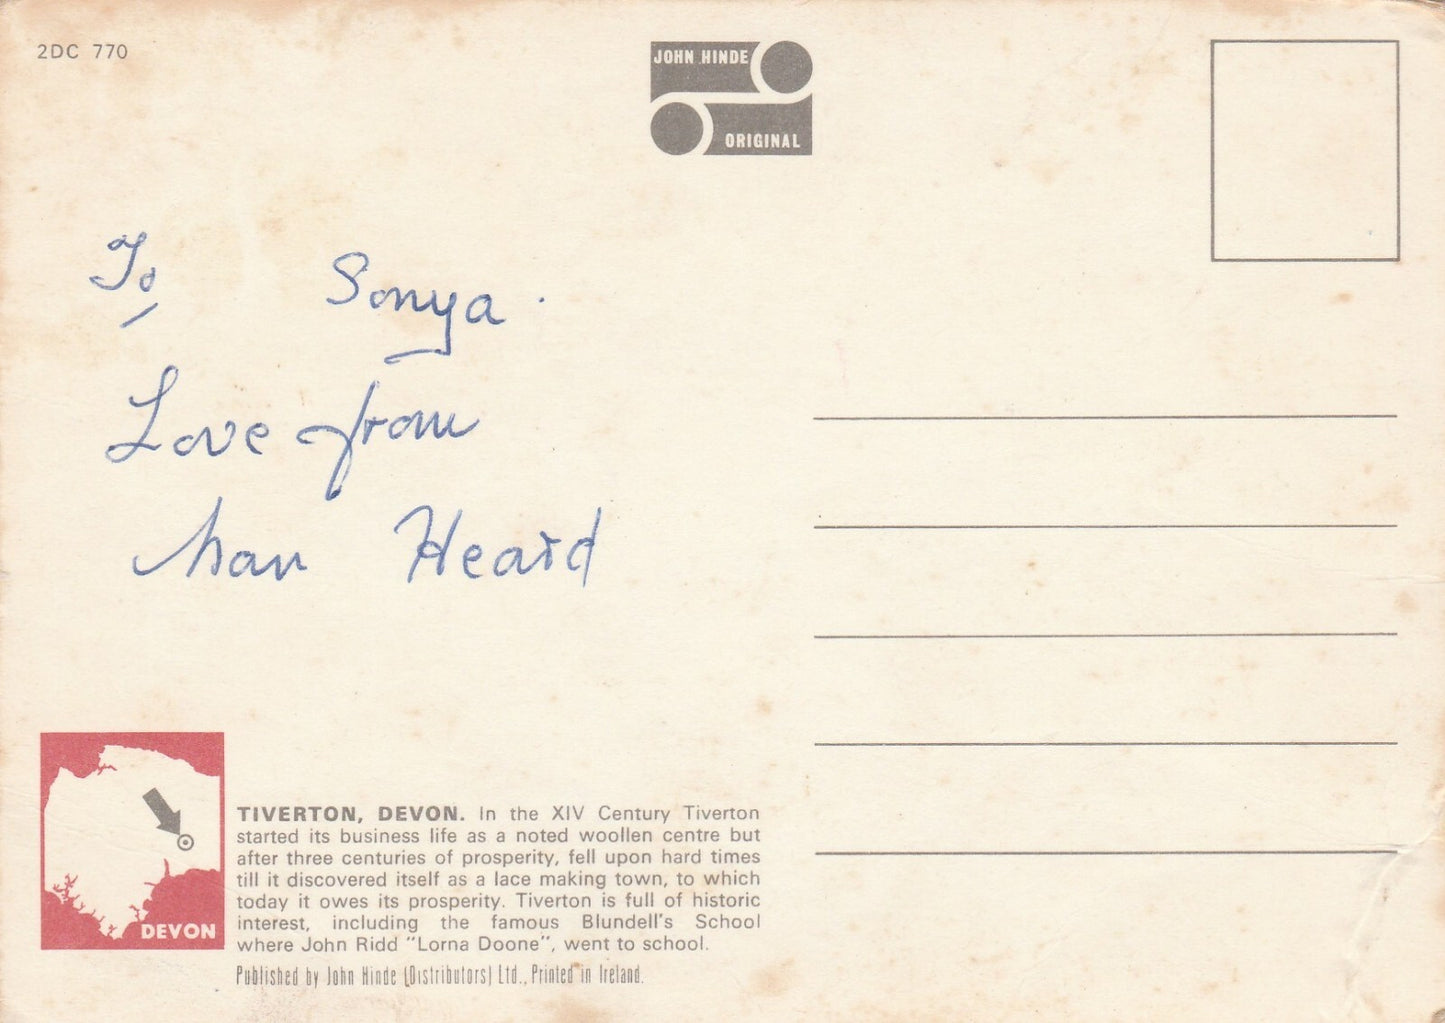 2DC 770
JOHN HINDE
ORIGINAL
To Sonya.
Love from
Heard
DEVON
TIVERTON, DEVON. In the XIV Century Tiverton
started its business life as a noted woollen centre but
after three centuries of prosperity, fell upon hard times
till it discovered itself as a lace making town, to which
today it owes its prosperity. Tiverton is full of historic
interest, including the famous Blundell's School
where John Ridd "Lorna Doone", went to school.
Published by John Hinde (Distributors) Ltd., Printed in Ireland.